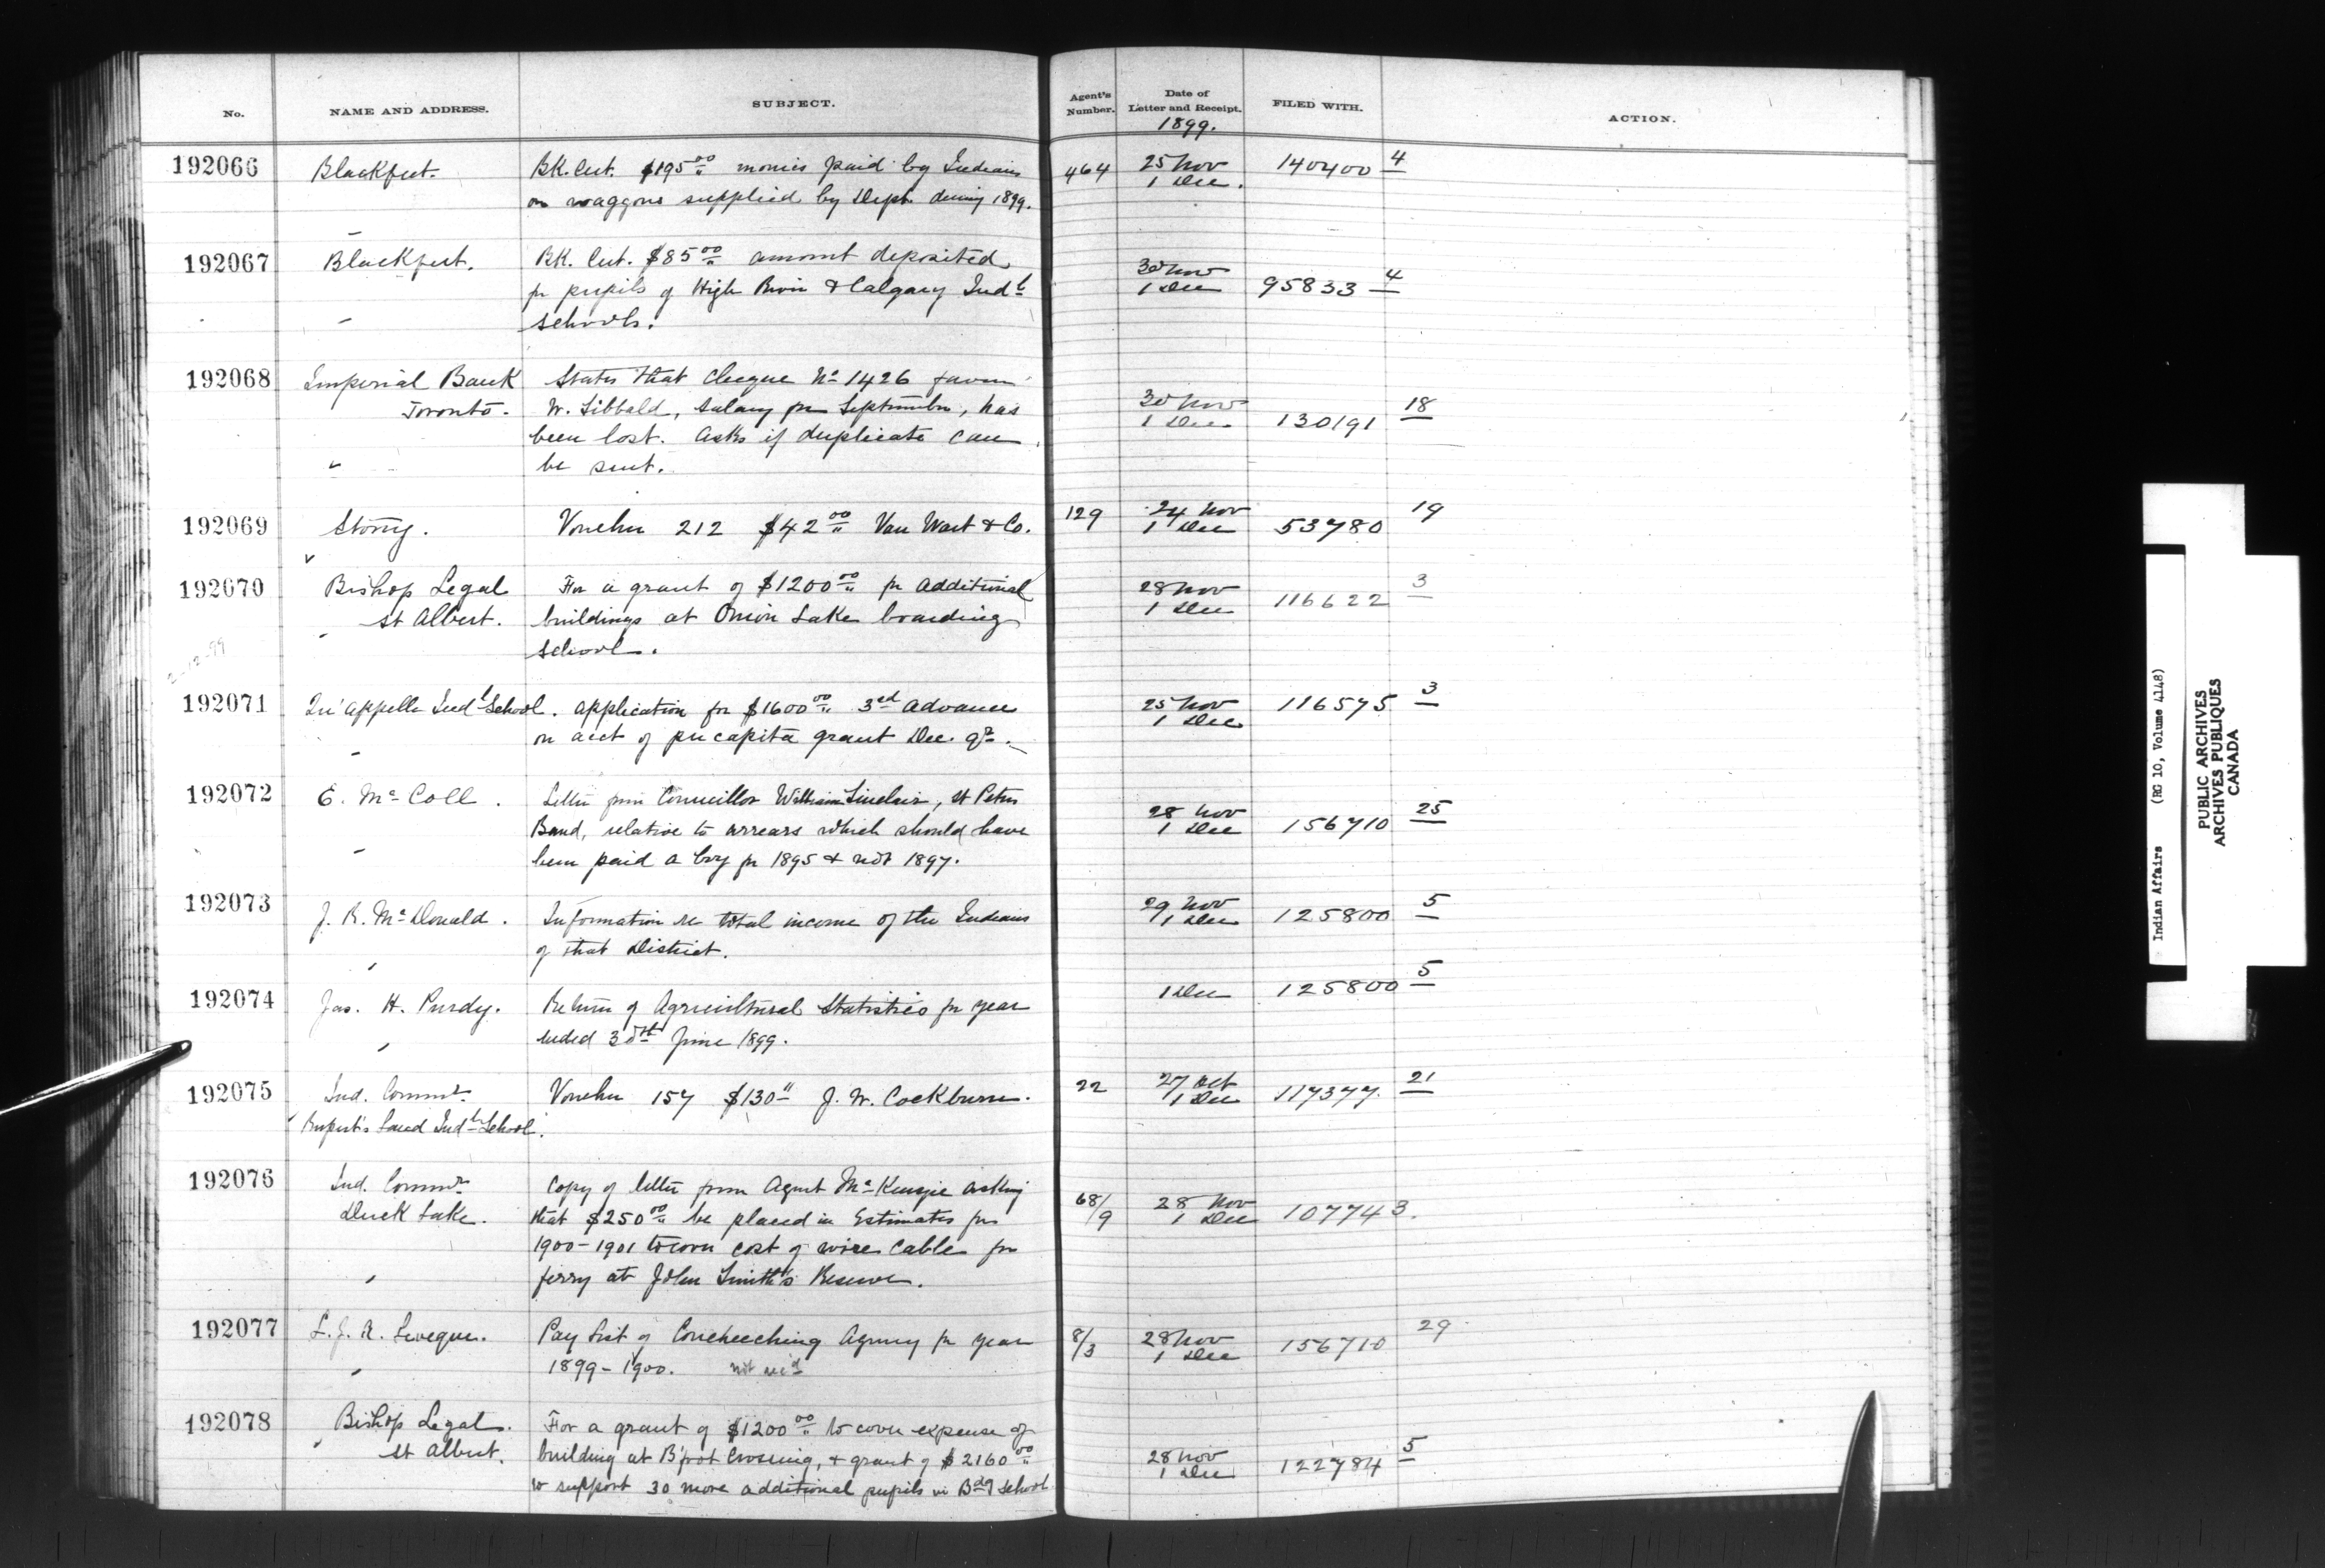 No. NAME AND ADDRESS. SUBJECT. Agent's Number. Date of Letter and Receipt. FILED WITH. ACTION.
1899.
192066 Blackfeet. BK. Cert. $195 00 monies paid by Indians 464 25 Nov 140400 4
on waggons supplied by Dept. during 1899. 1 Dec.
192067 Blackfeet. BK. Cert. $85 00 amount deposited 30 Nov
for pupils of High River & Calgary Indl 1 Dec 95833 4
schools.
192068 Imperial Bank States that cheque No 1426 favour
Toronto. W. Sibbald, salary for September, has 30 Nov 18
been lost. Asks if duplicate can 1 Dec 130191
be sent.
192069 Stony. Voucher 212 $42 00 Van Wart & Co. 129 24 Nov 53780 19
1 Dec
192070 Bishop Legal For a grant of $1200 00 for additional 28 Nov 116622 3
St Albert. buildings at Onion Lake boarding 1 Dec
school.
2-12-99
192071 Qu'appelle Indl School. Application for $1600 00 3rd advance 25 Nov 116575 3
on acct of per capita grant Dec. qr. 1 Dec
192072 E. McColl. Letter from Councillor William Sinclair, St Peters 28 Nov 25
Band, relative to arrears which should have 1 Dec 156710
been paid a boy for 1895 & not 1897.
192073 J. R. McDonald. Information re total income of the Indians 29 Nov 125800 5
of that District. 1 Dec
192074 Jas. H. Purdy. Return of Agricultural Statistics for year 1 Dec 125800 5
ended 30th June 1899.
192075 Ind. Commr Voucher 157 $130 J. W. Cockburn. 22 27 Oct 117377. 21
Rupert's Land Indl School. 1 Dec
192076 Ind. Commr Copy of letter from Agent McKenzie asking 68/9 28 Nov 107743.
Duck Lake. that $250 00 be placed in Estimates for 1 Dec
1900-1901 to cover cost of wire cable for
ferry at John Smith's Reserve.
192077 L. J. A. Leveque. Pay List of Coucheeching Agency for year 8/3 28 Nov 156710 29
1899-1900. not rec'd 1 Dec
192078 Bishop Legal. For a grant of $1200 00 to cover expense of
St Albert. building at B'foot Crossing, & grant of $2160 00 28 Nov 122784 5
to support 30 more additional pupils in Bdg School 1 Dec
Indian Affairs (RG 10, Volume 4148)
PUBLIC ARCHIVES
ARCHIVES PUBLIQUES
CANADA